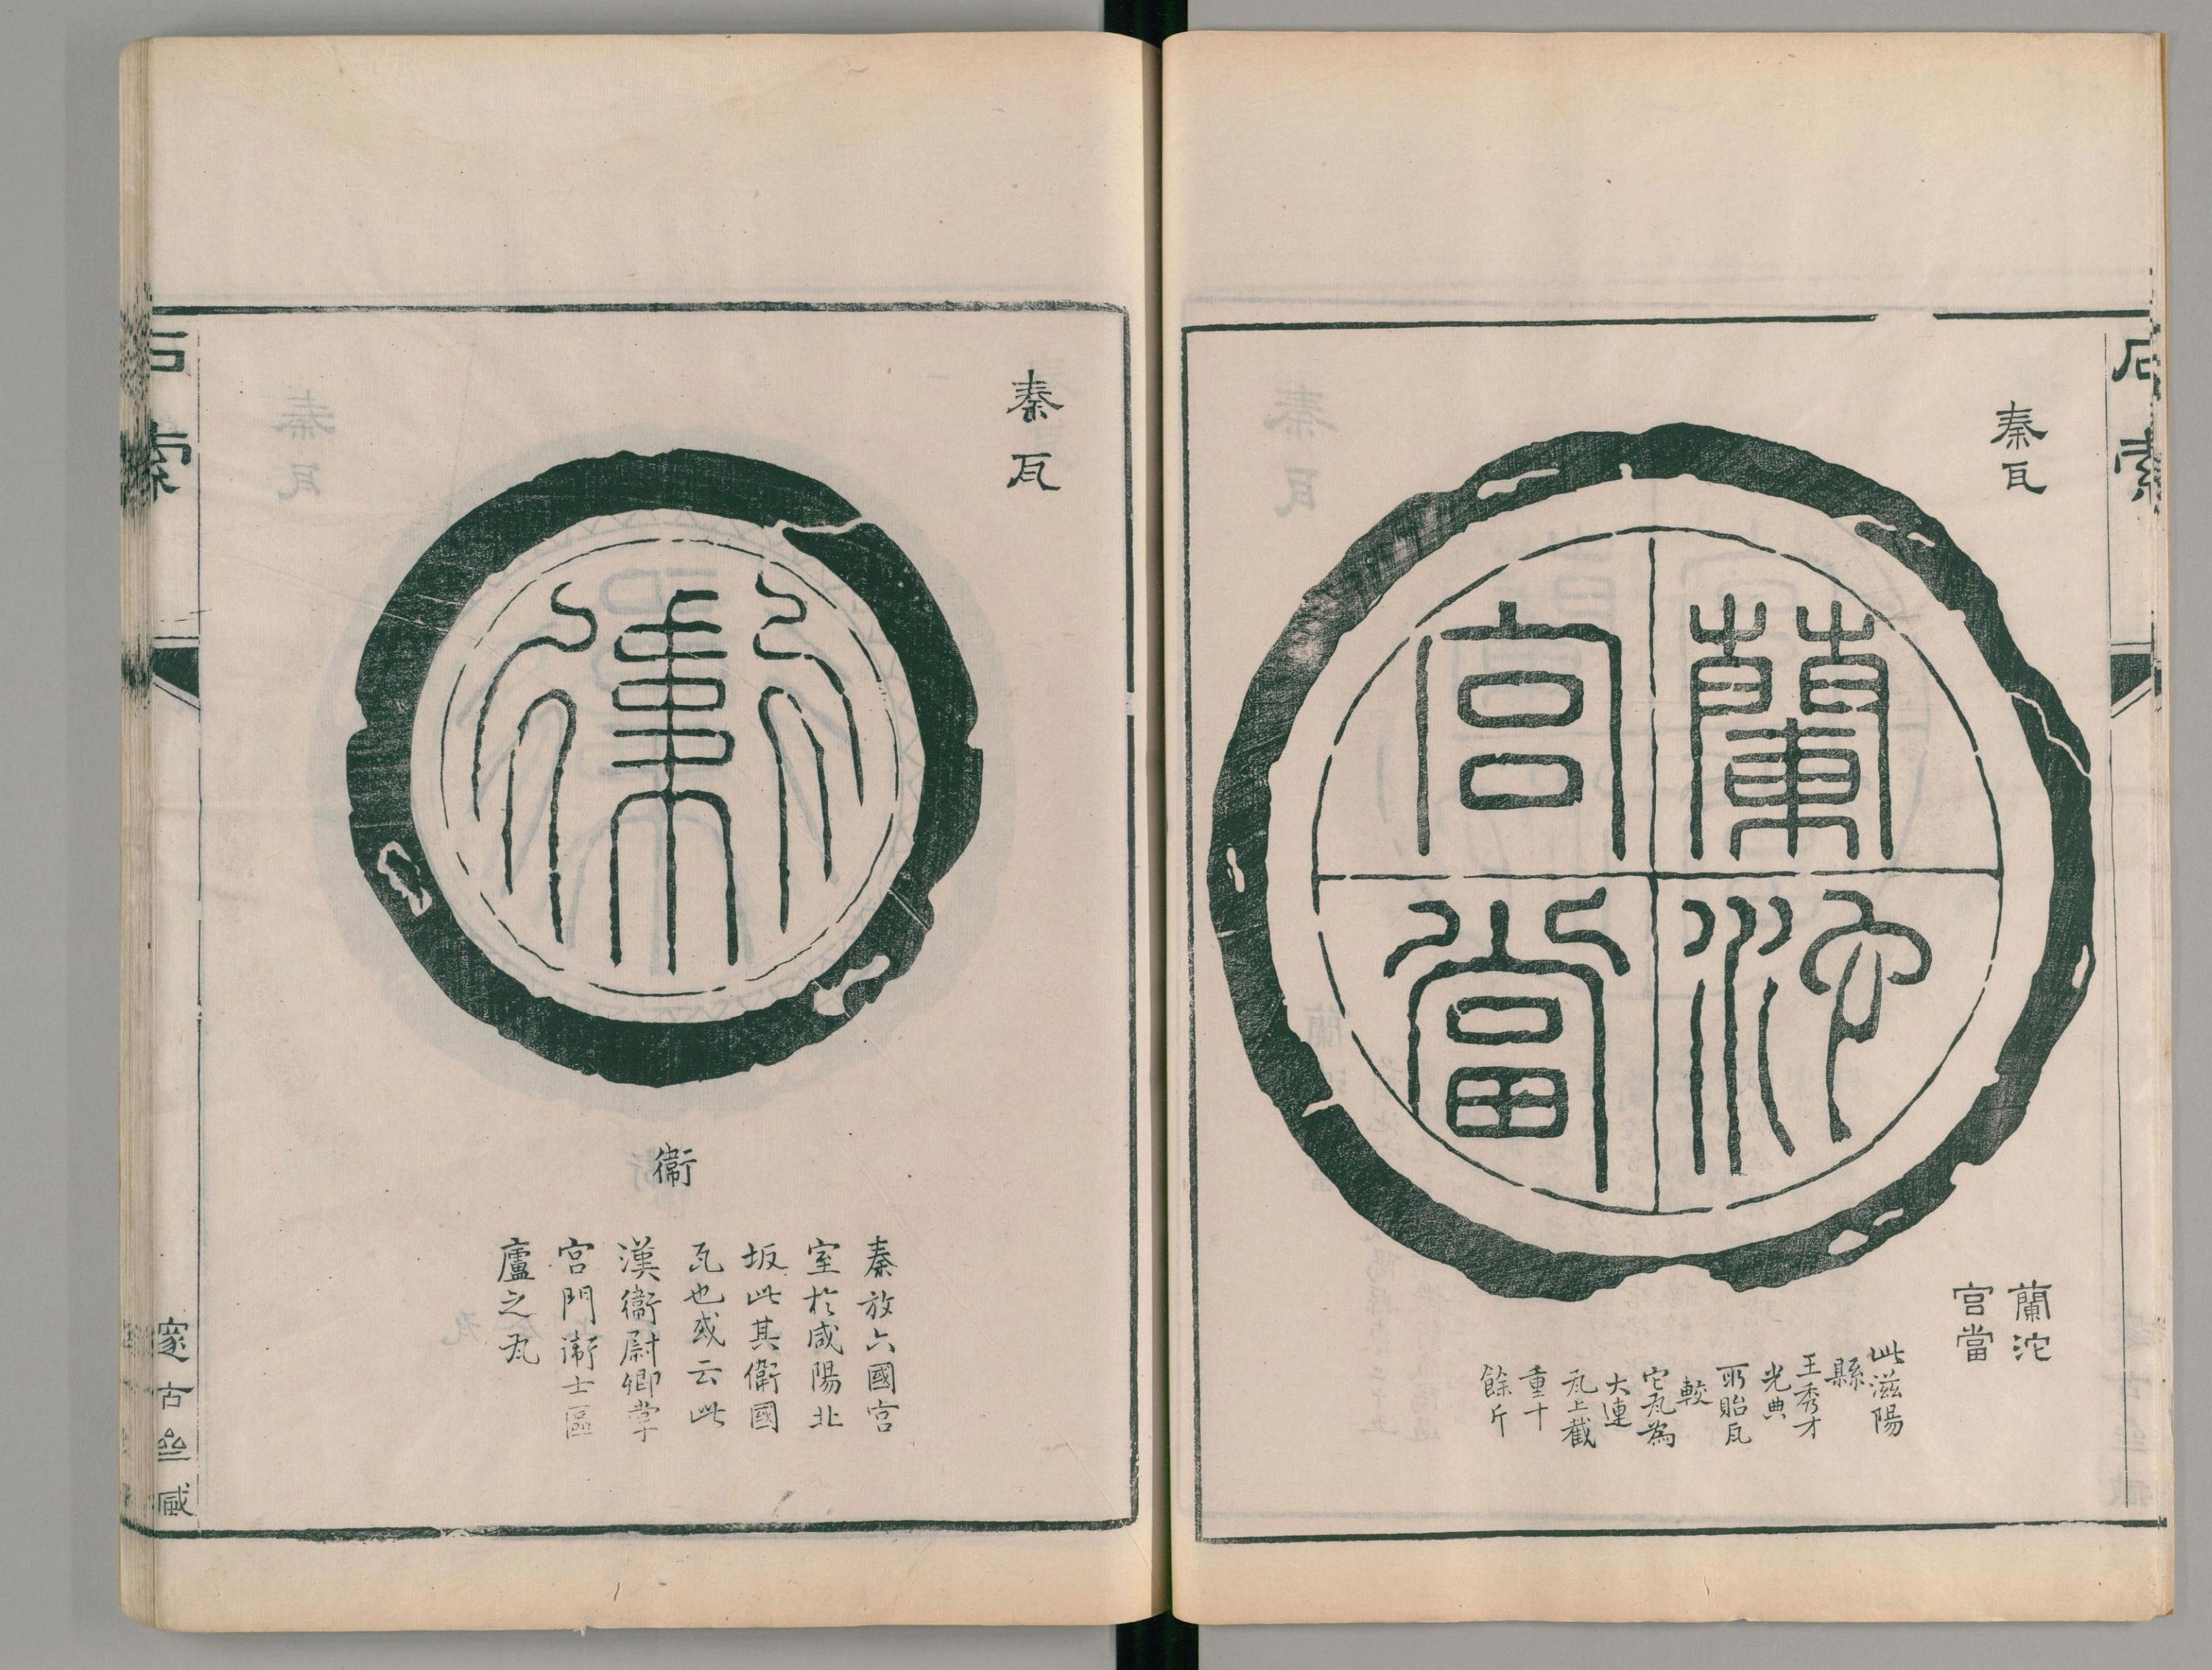 石索
秦瓦
蘭沱
宮當
蘭沱
宮當
此滋陽
縣
王秀才
光典
所貽瓦
較
它瓦為
大連
瓦上截
重十
餘斤
秦瓦
衛
衞
秦放六國宮
室於咸陽北
坂此其衛國
瓦也或云此
漢衞尉卿掌
宮門衞士區
廬之瓦
石索
邃古𡶴臧